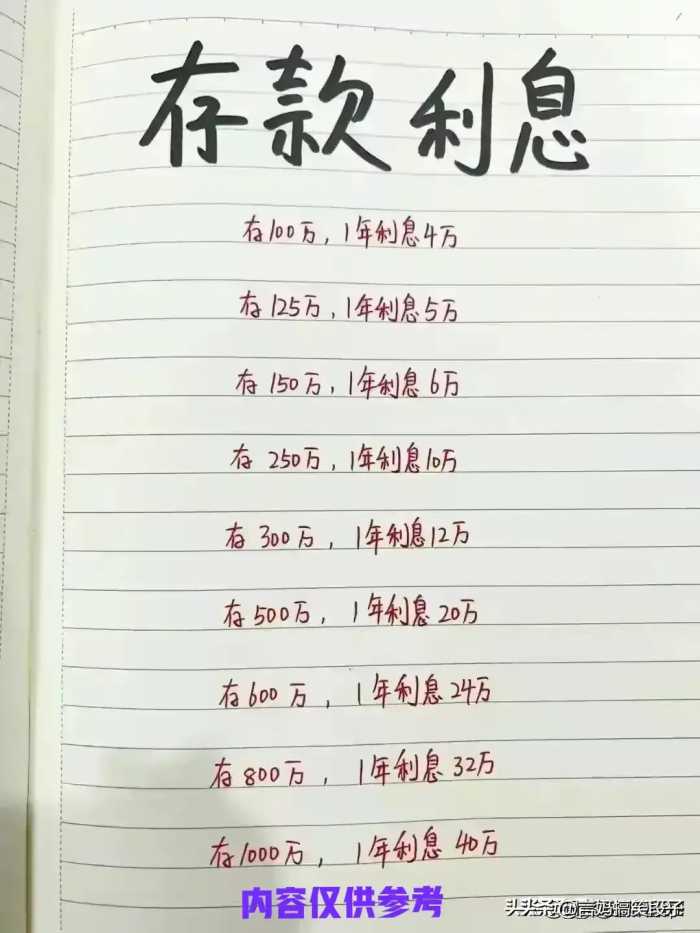 存款利息
存100万，1年利息4万
存125万，1年利息5万
存150万，1年利息6万
存250万，1年利息10万
存300万，1年利息12万
存500万，1年利息20万
存600万，1年利息24万
存800万，1年利息32万
存1000万，1年利息40万
内容仅供参考
头条@言妈搞笑段子